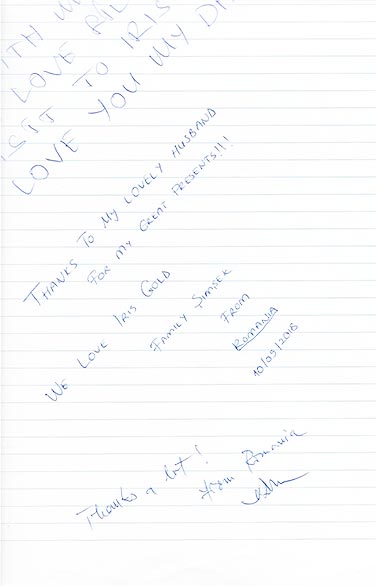 LOVE
TO IRIS
LOVE YOU MY
THANKS TO MY LOVELY HUSBAND
FOR MY GREAT PRESENTS!!!
WE LOVE IRIS GOLD
FAMILY ŞIMŞEK
FROM
ROMANIA
10/09/2016
Thanks a lot!
from Romania